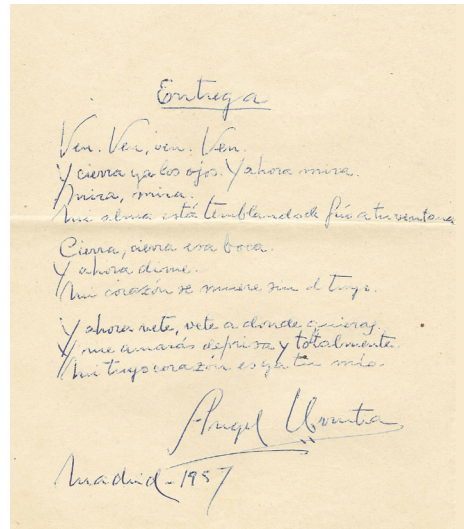 Entrega
Ven. Ven, ven. Ven.
Y cierra ya los ojos. Y ahora mira.
Mira, mira.
Mi alma está temblando de frío a tu ventana
Cierra, cierra esa boca.
Y ahora dime.
Mi corazón se muere sin el tuyo.
Y ahora vete, vete a donde quieras.
Y me amarás deprisa y totalmente.
Mi tuyo corazon es ya tu mío.
Angel Urrutia
Madrid - 1957